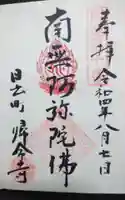 奉拝
令和四年八月七日
南無阿弥陀佛
日吉町
帰命寺